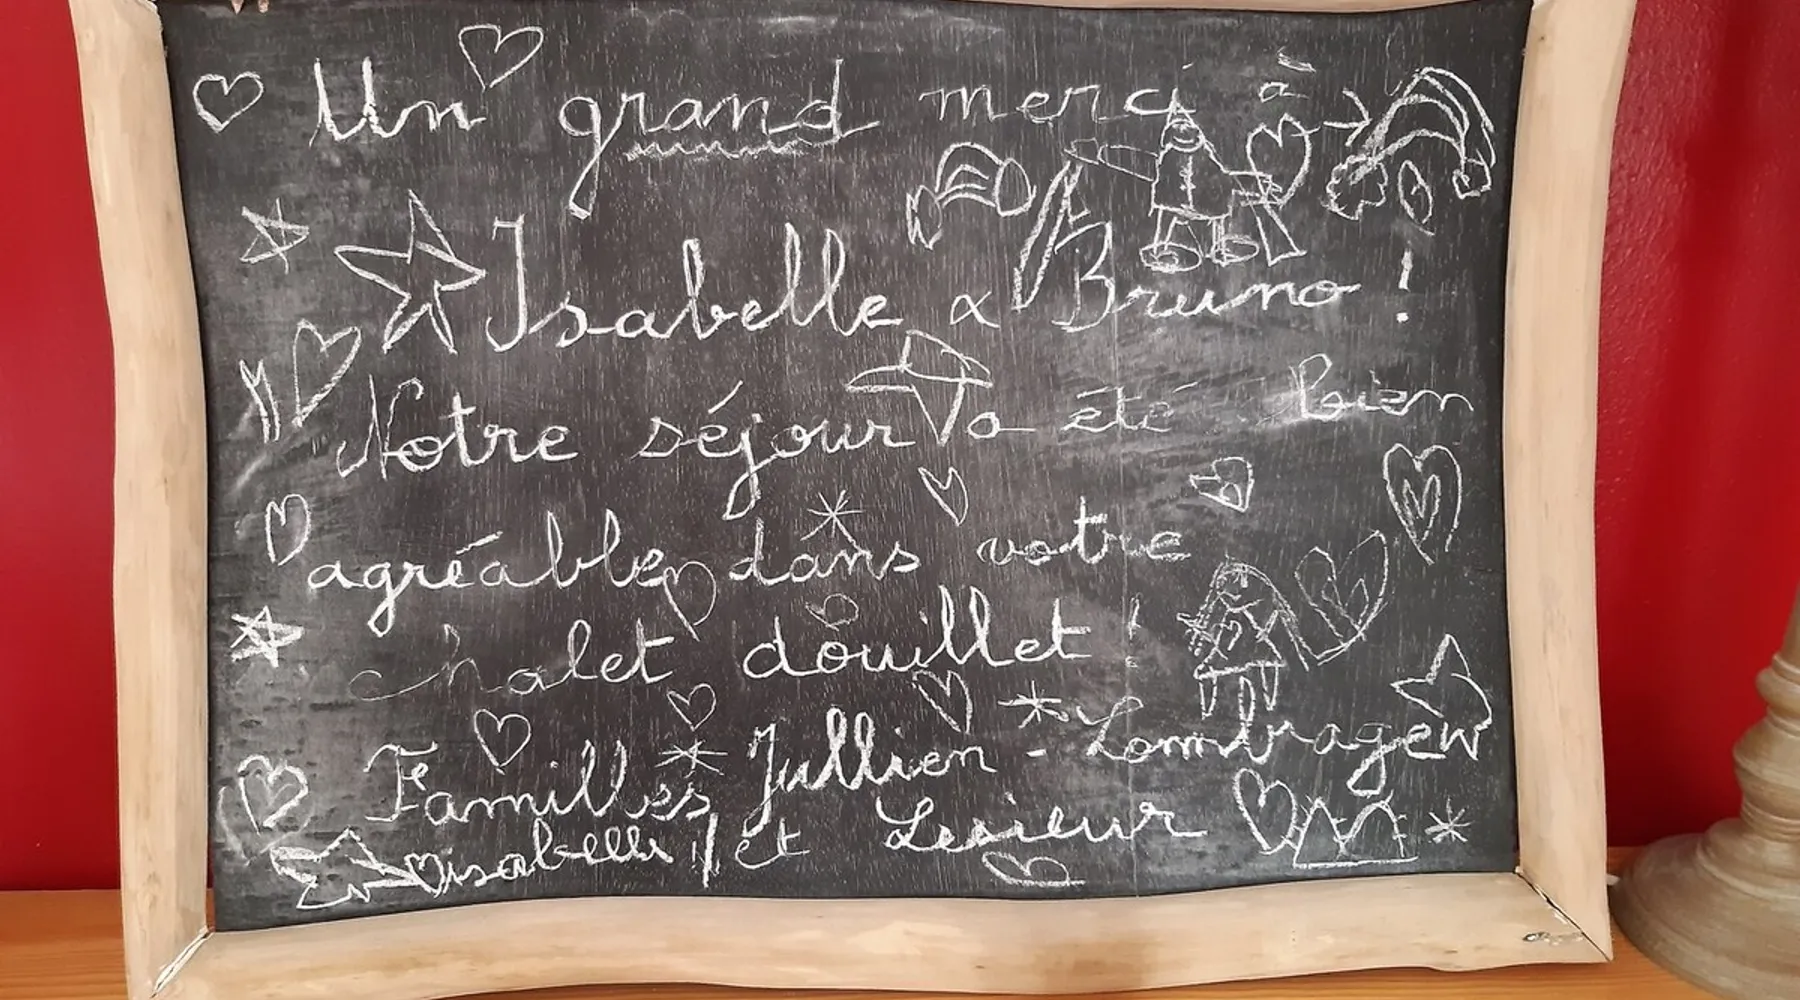 Un grand merci à
Isabelle & Bruno !
Notre séjour a été bien
agréable dans votre
chalet douillet !
Familles Jullien - Lombragew
isabelle et Lesieur